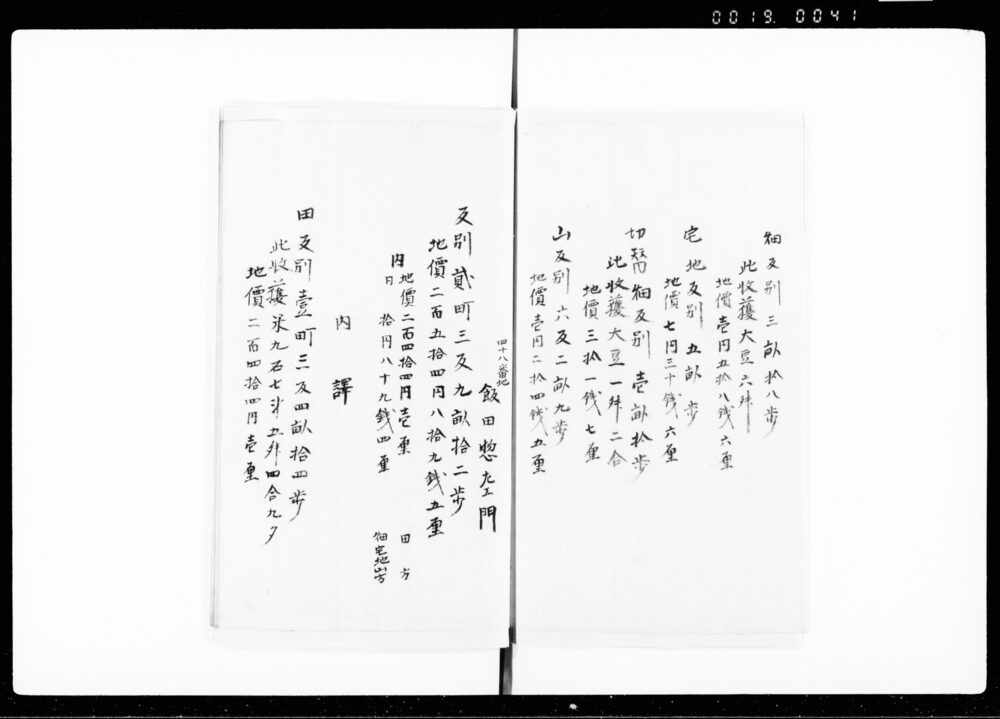 0019. 0041
畑反別 三畝拾八歩
此收獲大豆六升
地價壱円五拾八銭六厘
宅地反別 五畝歩
地價七円三十銭六厘
切替畑反別 壱畝拾歩
此收獲大豆一升二合
地價三拾一銭七厘
山反別 六反二畝九歩
地價壱円二拾四銭五厘
四十八番地 飯田惣左エ門
反別貳町三反九畝拾二歩
地價二百五拾四円八拾九銭五厘
内 地價二百四拾四円壱厘 田方
内 拾円八十九銭四厘 畑宅地山方
内譯
田反別壹町三反四畝拾四歩
此收獲米九石七斗五升四合九夕
地價二百四拾四円壱厘